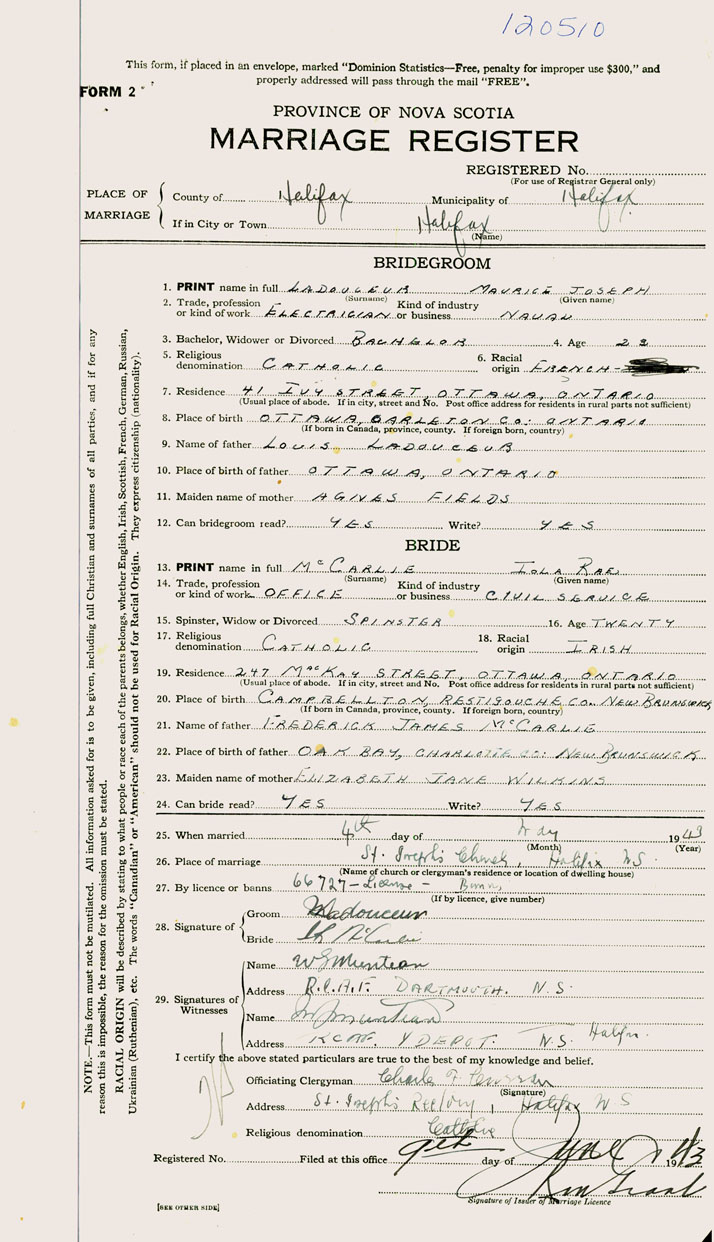 120510
This form, if placed in an envelope, marked "Dominion Statistics—Free, penalty for improper use $300," and
properly addressed will pass through the mail "FREE".
FORM 2
PROVINCE OF NOVA SCOTIA
MARRIAGE REGISTER
REGISTERED No.
(For use of Registrar General only)
PLACE OF MARRIAGE
County of Halifax Municipality of Halifax
If in City or Town Halifax
(Name)
BRIDEGROOM
1. PRINT name in full LADOUCEUR MAURICE JOSEPH
(Surname) (Given name)
2. Trade, profession or kind of work ELECTRICIAN Kind of industry or business NAVAL
3. Bachelor, Widower or Divorced BACHELOR 4. Age 22
5. Religious denomination CATHOLIC 6. Racial origin FRENCH-
7. Residence 41 IVY STREET, OTTAWA, ONTARIO
(Usual place of abode. If in city, street and No. Post office address for residents in rural parts not sufficient)
8. Place of birth OTTAWA, CARLETON CO: ONTARIO
(If born in Canada, province, county. If foreign born, country)
9. Name of father LOUIS LADOUCEUR
10. Place of birth of father OTTAWA, ONTARIO
11. Maiden name of mother AGNES FIELDS
12. Can bridegroom read? YES Write? YES
BRIDE
13. PRINT name in full McCARLIE IOLA RAE
(Surname) (Given name)
14. Trade, profession or kind of work OFFICE Kind of industry or business CIVIL SERVICE
15. Spinster, Widow or Divorced SPINSTER 16. Age TWENTY
17. Religious denomination CATHOLIC 18. Racial origin IRISH
19. Residence 247 MACKAY STREET, OTTAWA, ONTARIO
(Usual place of abode. If in city, street and No. Post office address for residents in rural parts not sufficient)
20. Place of birth CAMPBELLTON, RESTIGOUCHE CO. NEW BRUNSWICK
(If born in Canada, province, county. If foreign born, country)
21. Name of father FREDERICK JAMES McCARLIE
22. Place of birth of father OAK BAY, CHARLOTTE CO: NEW BRUNSWICK
23. Maiden name of mother ELIZABETH JANE WILKINS
24. Can bride read? YES Write? YES
25. When married 4th day of 1943
(Month) (Year)
26. Place of marriage St. Joseph's Church, Halifax NS
(Name of church or clergyman's residence or location of dwelling house)
27. By licence or banns 66727-License - Banns
(If by licence, give number)
28. Signature of
Groom Ladouceur
Bride McCarlie
29. Signatures of Witnesses
Name
Address R.C.A.F. DARTMOUTH. N.S.
Name
Address RCAF. Y DEPOT. N.S. Halifax.
I certify the above stated particulars are true to the best of my knowledge and belief.
Officiating Clergyman Charles F
(Signature)
Address St. Joseph's Rectory, Halifax NS
Religious denomination Catholic
Registered No. Filed at this office 9th day of June 1943
Signature of Issuer of Marriage Licence
[SEE OTHER SIDE]
NOTE.—This form must not be mutilated. All information asked for is to be given, including full Christian and surnames of all parties, and if for any
reason this is impossible, the reason for the omission must be stated.
RACIAL ORIGIN will be described by stating to what people or race each of the parents belongs, whether English, Irish, Scottish, French, German, Russian,
Ukrainian (Ruthenian), etc. The words "Canadian" or "American" should not be used for Racial Origin. They express citizenship (nationality).